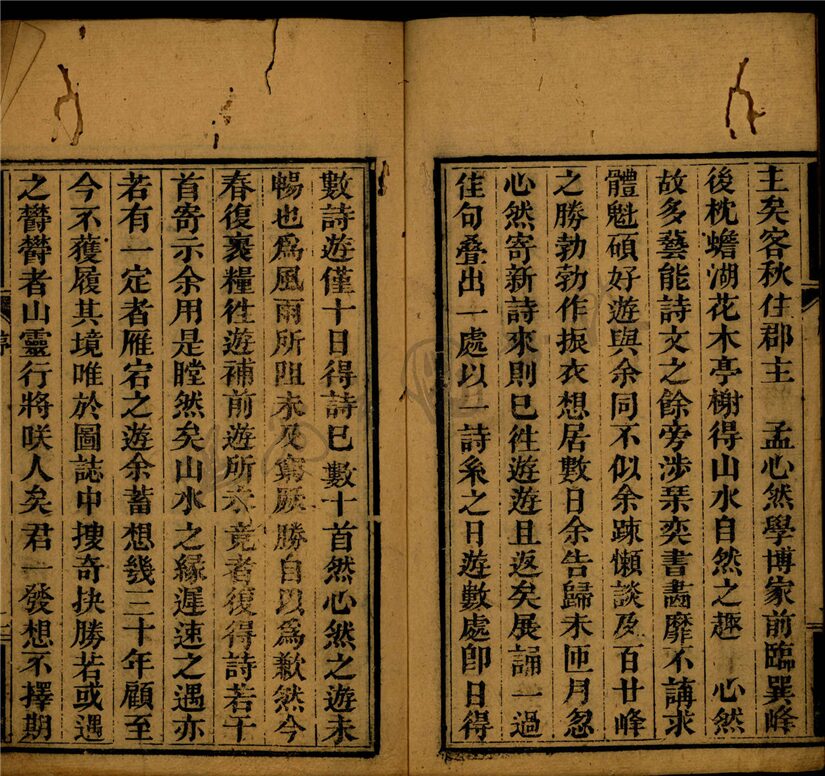 主矣客秋住郡主　孟心然學博家前臨巽峰
後枕蟾湖花木亭榭得山水自然之趣　心然
故多藝能詩文之餘旁涉琹奕書畵靡不講求
體魁碩好遊與余同不似余踈懶談及百廿峰
之勝勃勃作振衣想居數日余告歸未匝月忽
心然寄新詩來則巳徃遊遊且返矣展誦一過
佳句叠出一處以一詩系之日遊數處卽日得
數詩遊僅十日得詩巳數十首然心然之遊未
暢也爲風雨所阻未及窮厥勝自以爲歉然今
春復裹糧徃遊補前遊所未竟者復得詩若干
首寄示余用是瞠然矣山水之緣遲速之遇亦
若有一定者雁宕之遊余蓄想幾三十年顧至
今不獲履其境唯於圖誌中捜奇抉勝若或遇
之欝欝者山靈行將咲人矣君一發想不擇期
序